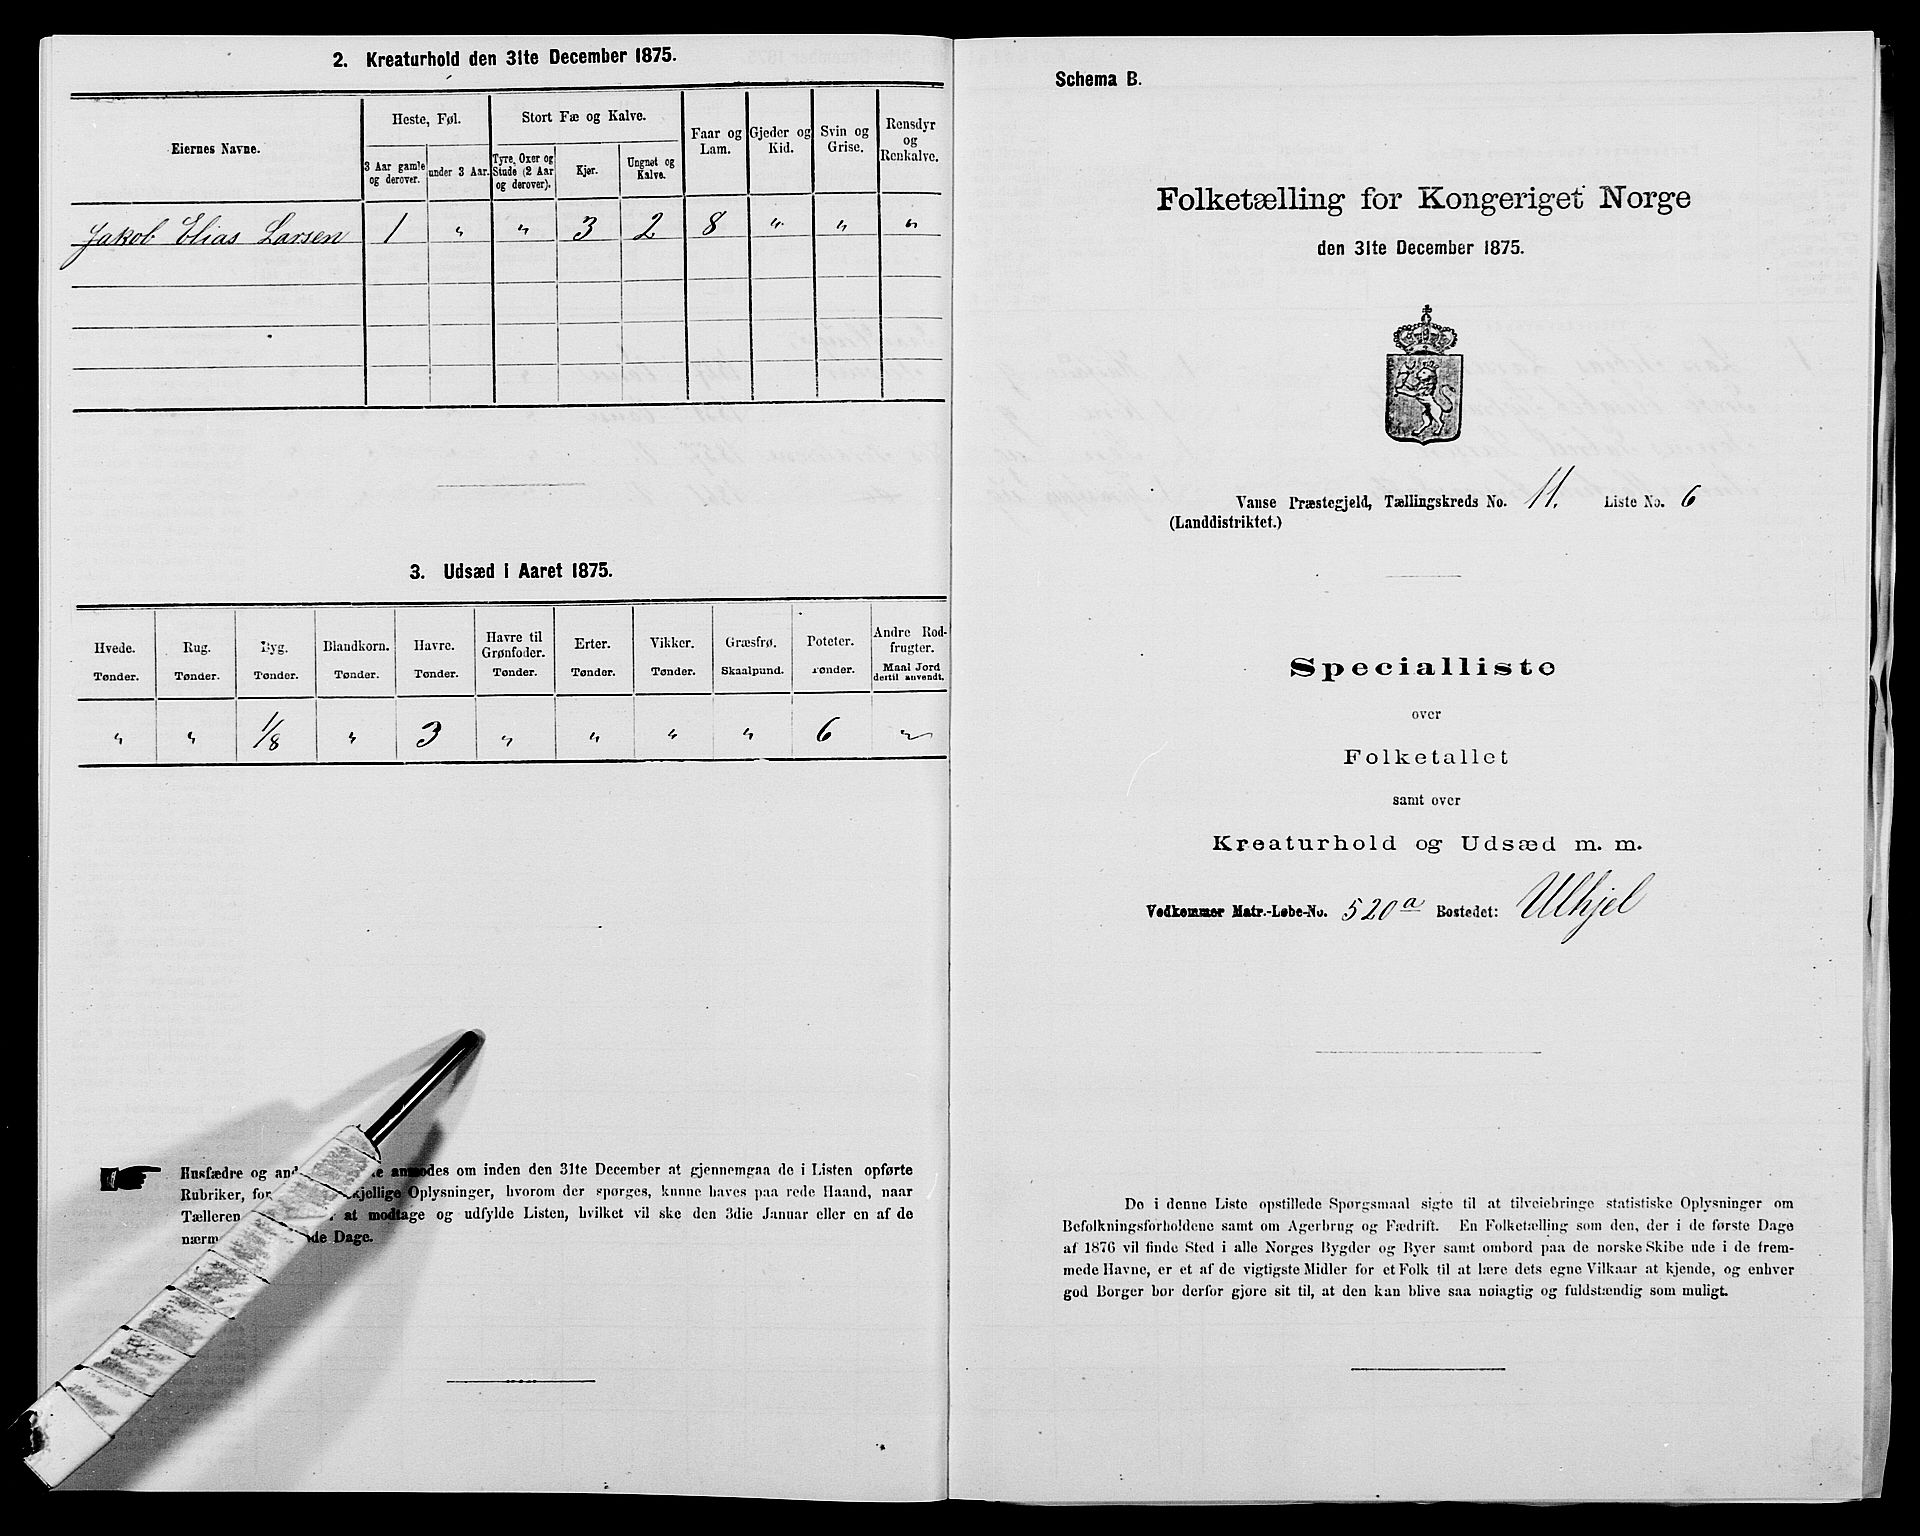 2. Kreaturhold den 31te December 1875.
Eiernes Navne.
Heste, Føl.
Stort Fæ og Kalve.
Faar og Lam.
Gjeder og Kid.
Svin og Grise.
Rensdyr og Renkalve.
3 Aar gamle og derover.
under 3 Aar.
Tyre, Oxer og Stude (2 Aar og derover).
Kjør.
Ungnøt og Kalve.
Jakob Elias Larsen 1 " " 3 2 8 " " "
3. Udsæd i Aaret 1875.
Hvede. Rug. Byg. Blandkorn. Havre. Havre til Grønfoder. Erter. Vikker. Græsfrø. Poteter. Andre Rodfrugter.
Tønder. Tønder. Tønder. Tønder. Tønder. Tønder. Tønder. Tønder. Skaalpund. Tønder. Maal Jord dertil anvendt.
" " 1/8 " 3 " " " " 6 "
Husfædre og and te anmodes om inden den 31te December at gjennemgaa de i Listen opførte
Rubriker, for kjellige Oplysninger, hvorom der spørges, kunne haves paa rede Haand, naar
Tælleren at modtage og udfylde Listen, hvilket vil ske den 3die Januar eller en af de
nærm de Dage.
Schema B.
Folketælling for Kongeriget Norge
den 31te December 1875.
Vanse Præstegjeld, Tællingskreds No. 11. Liste No. 6
(Landdistriktet.)
Specialliste
over
Folketallet
samt over
Kreaturhold og Udsæd m. m.
Vedkommer Matr.-Løbe-No. 520a Bostedet: Ulhjel
De i denne Liste opstillede Spørgsmaal sigte til at tilveiebringe statistiske Oplysninger om
Befolkningsforholdene samt om Agerbrug og Fædrift. En Folketælling som den, der i de første Dage
af 1876 vil finde Sted i alle Norges Bygder og Byer samt ombord paa de norske Skibe ude i de frem-
mede Havne, er et af de vigtigste Midler for et Folk til at lære dets egne Vilkaar at kjende, og enhver
god Borger bør derfor gjøre sit til, at den kan blive saa nøiagtig og fuldstændig som muligt.